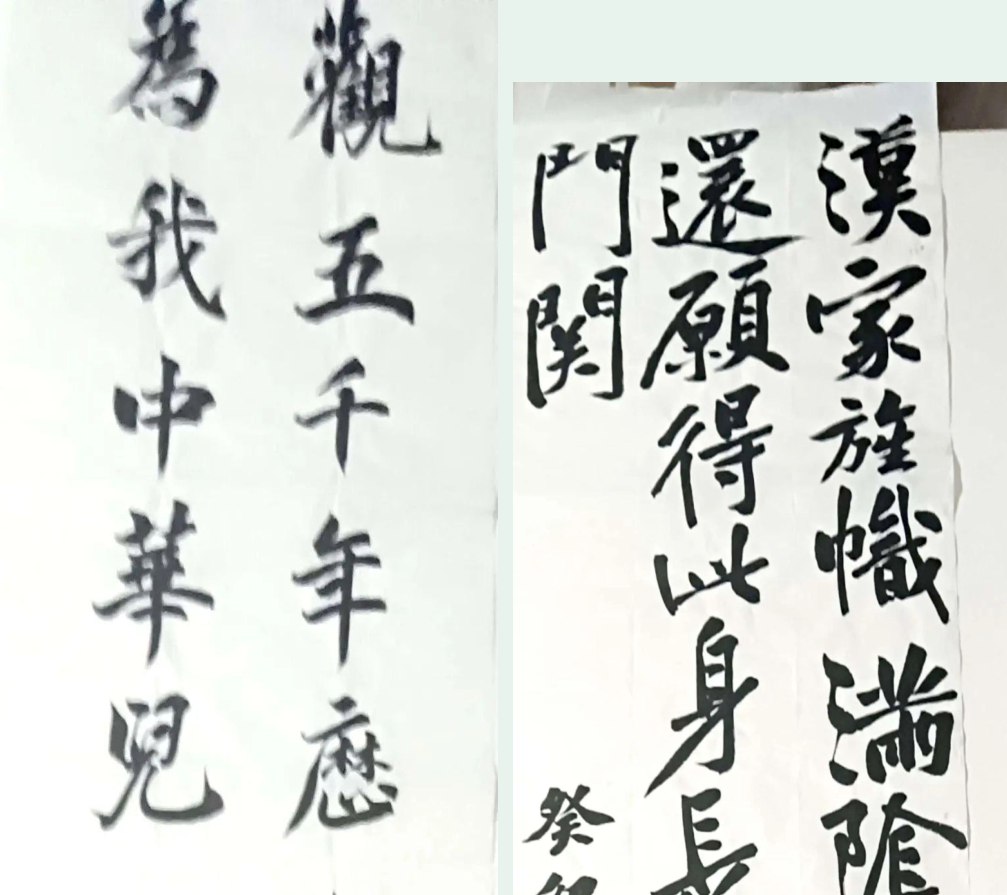 觀五千年歷
為我中華兒
漢家旌幟滿陰
還願得此身長
門関
癸